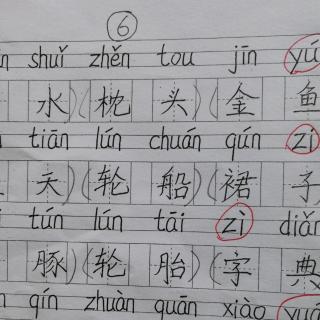 ⑥
shuǐ zhěn tou jīn yú
水)(枕 头)(金 鱼
tiān lún chuán qún zi
天)(轮 船)(裙 子
tún lún tāi zì diǎn
豚)(轮 胎)(字 典
qín zhuàn quān xiào